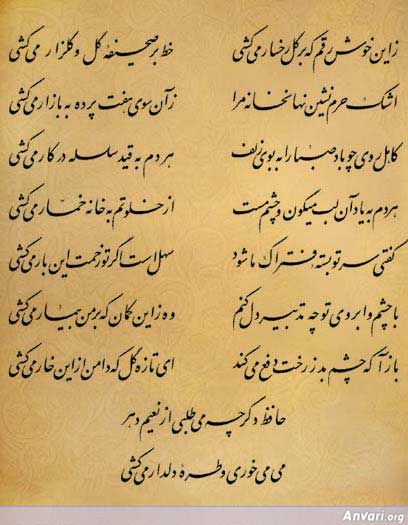 زاین خوش رقم که بر گل رخسار می‌کشی خط بر صحیفهٔ گل و گلزار می‌کشی
اشک حرم نشین نهانخانه مرا زآن سوی هفت پرده به بازار می‌کشی
کاهل روی چو باد صبا را به بوی زلف هر دم به قید سلسله در کار می‌کشی
هر دم به یاد آن لب میگون و چشم مست از خلوتم به خانه خمار می‌کشی
گفتی سر تو بسته فتراک ما شود سهل است اگر تو زحمت این بار می‌کشی
با چشم و ابروی تو چه تدبیر دل کنم وه زاین کمان که بر من بیمار می‌کشی
باز آ که چشم بد ز رخت دفع می‌کند ای تازه گل که دامن از این خار می‌کشی
حافظ دگر چه می‌طلبی از نعیم دهر
می می‌خوری و طرهٔ دلدار می‌کشی
Anvari.org